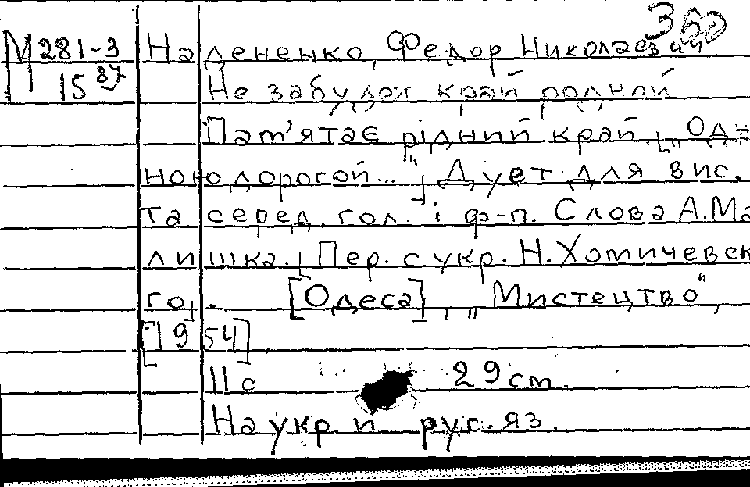 360
М 281-3 Надененко, Федор Николаевич
15 87 Не забудем край родной
Пам'ятає рідний край „Од-
ною дорогой..." Дует для вис.
та серед. гол. і ф-п. Слова А.Ма
лишка. Пер. с укр. Н.Хомичевск
го. [Одеса], „Мистецтво",
[1954]
11 с 29 см.
На укр. и рус. яз.